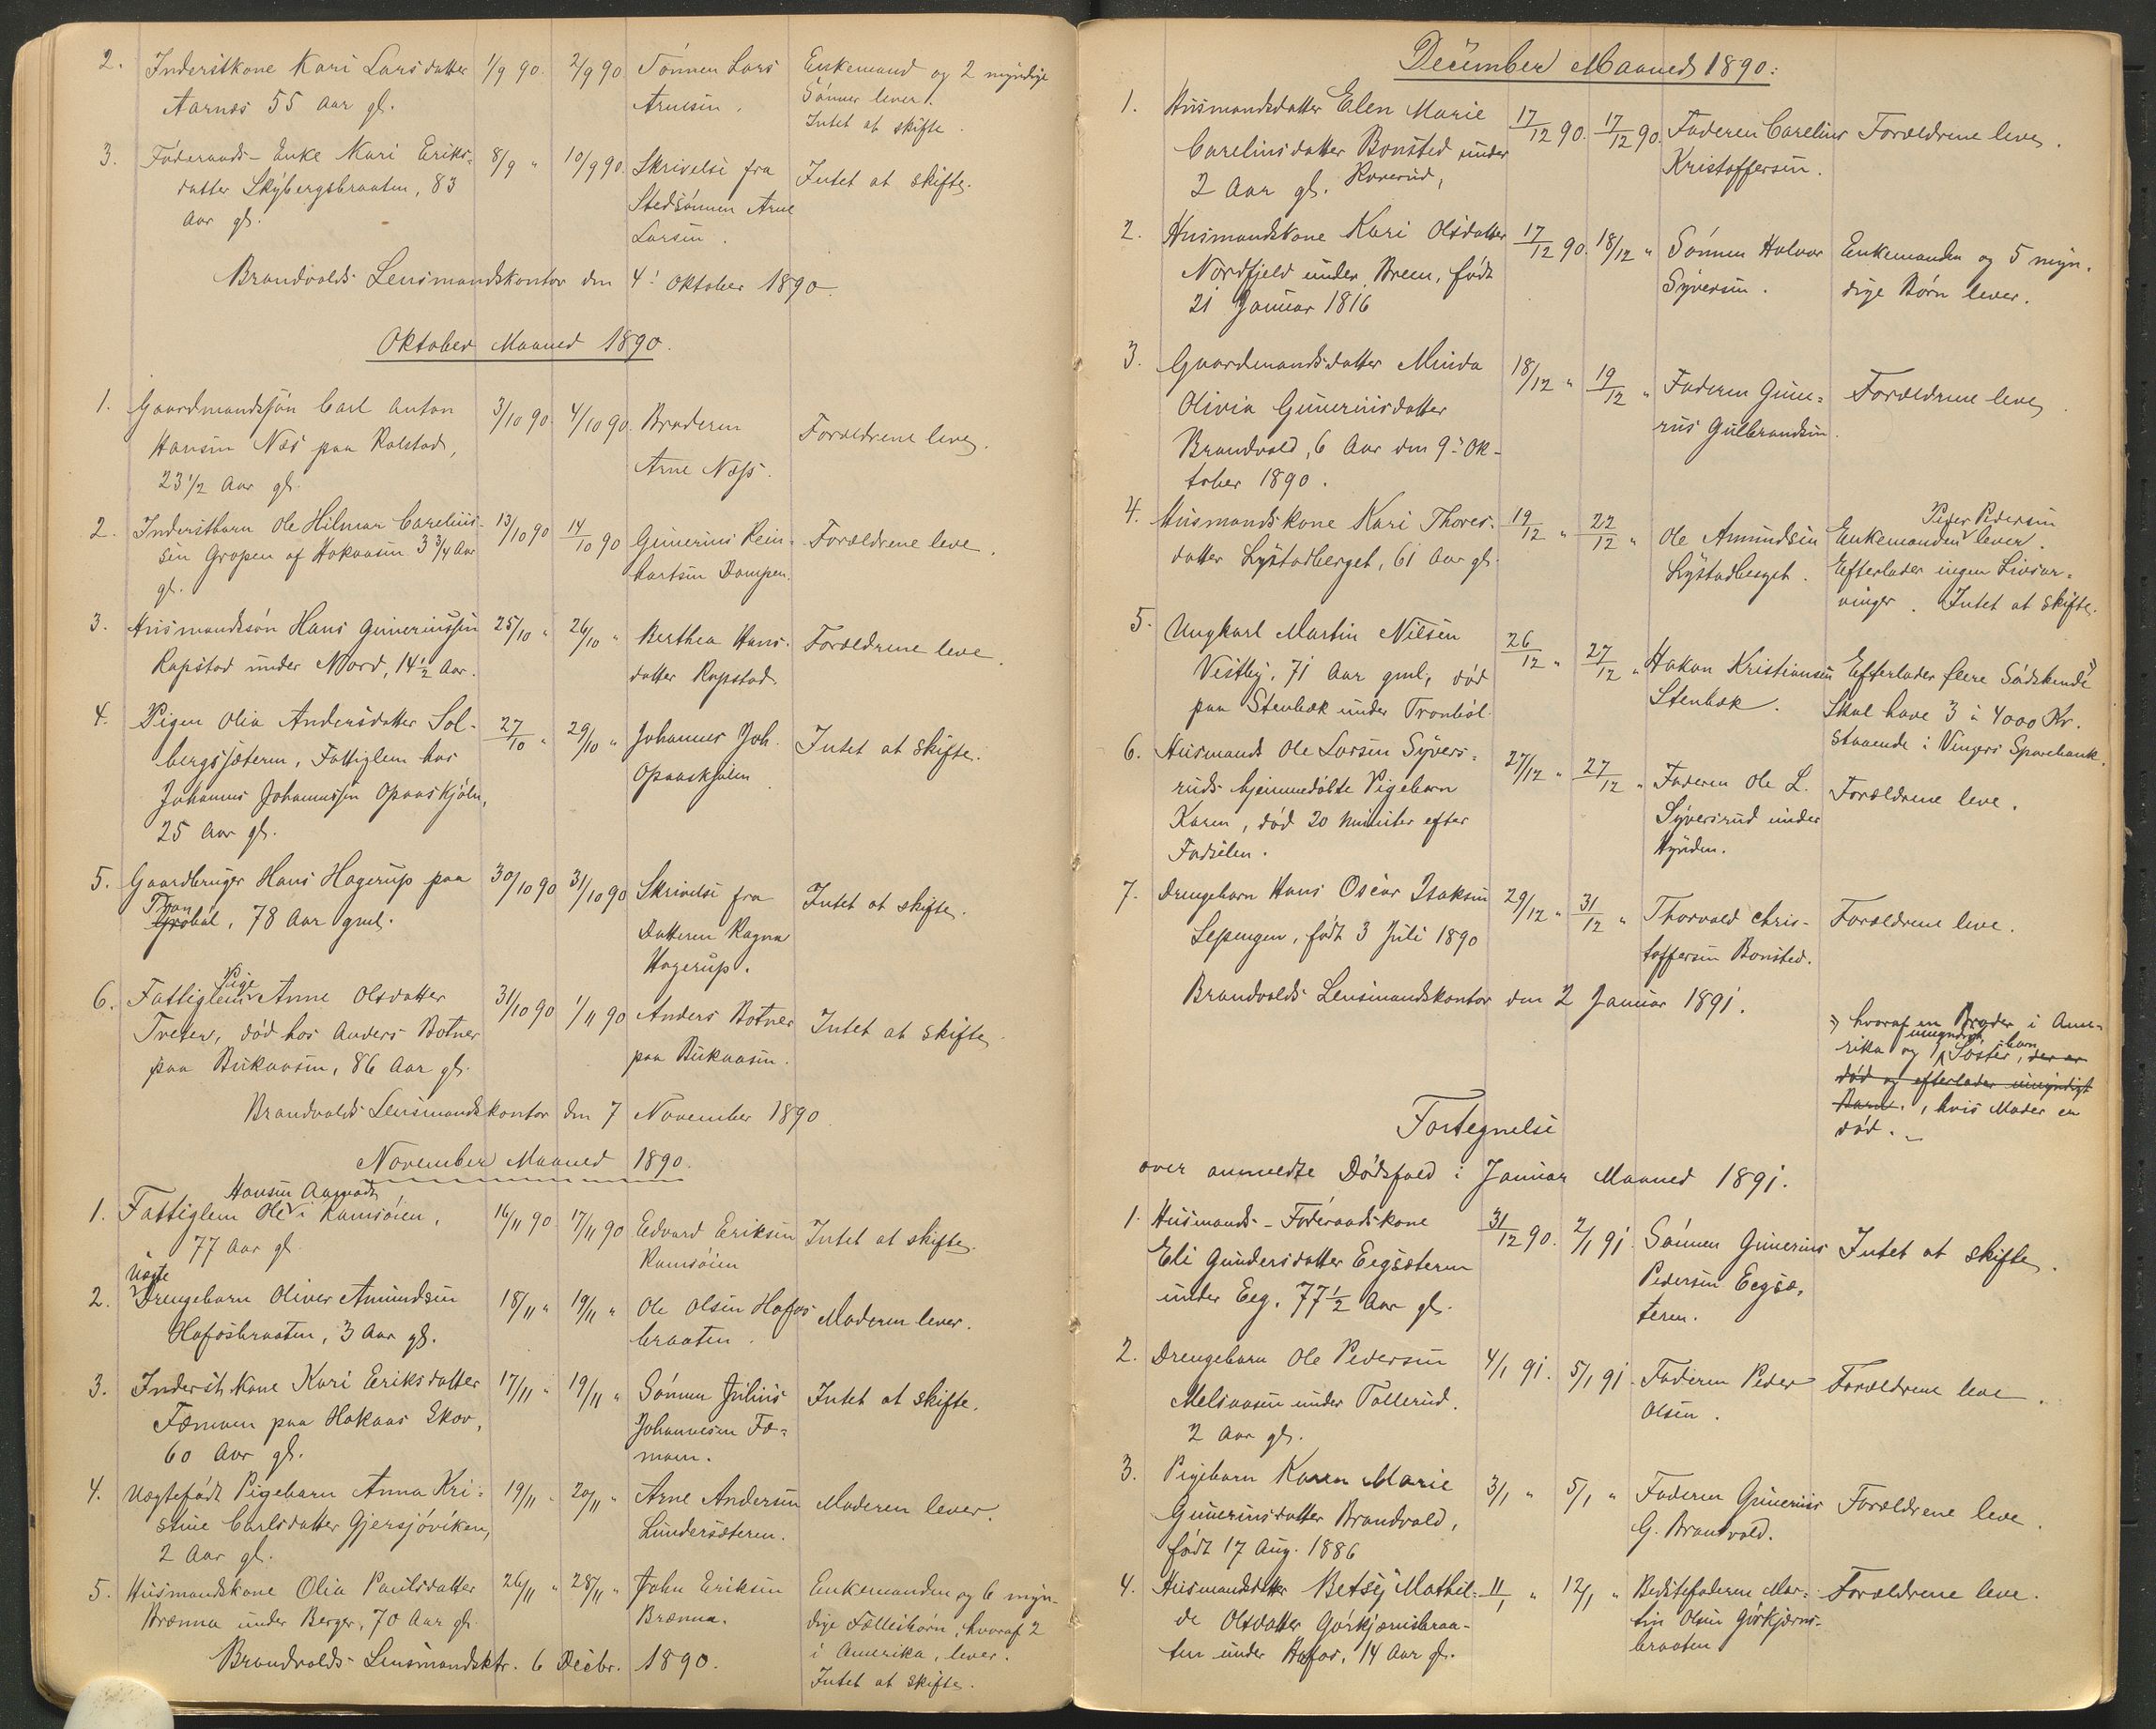 2. Inderstkone Kari Larsdatter 1/9 90. 2/9 90 Sønnen Lars Enkemand og 2 myndige
Aarnæs 55 Aar gl. Arnesen. Sønner lever.
Intet at skifte.
3. Føderaads-Enke Kari Eriks- 8/9 " 10/9 90. Skrivelse fra Intet at skifte.
datter Skybergsbraaten, 83 Stedsønnen Arne
Aar gl. Larsen.
Brandvolds Lensmandskontor den 4: Oktober 1890.
Oktober Maaned 1890.
1. Gaardmandssøn Carl Anton 3/10 90. 4/10 90. Broderen Forældrene leve.
Hansen Næs paa Rolstad, Arne Næss.
23 1/2 Aar gl.
2. Inderstbarn Ole Hilmar Carelius- 13/10 90 14/10 90 Gunerius Rein- Forældrene leve.
sen Gropen af Hokaasen 3 3/4 Aar hartsen Dompen.
gl.
3. Husmandssøn Hans Guneriussen 25/10 " 26/10 " Berthea Hans- Forældrene leve.
Rapstad under Nord, 14 1/2 Aar. datter Rapstad.
4. Pigen Olia Andersdatter Sol- 27/10 " 29/10 " Johannes Joh. Intet at skifte.
bergssæteren, Fattiglem hos Opaaskjølen
Johannes Johannessen Opaaskjølen,
25 Aar gl.
5. Gaardbruger Hans Hagerup paa 30/10 90 31/10 90 Skrivelse fra Intet at skifte.
Tron
Grøbøl, 78 Aar gml. Datteren Ragna
Hagerup.
Pige
6. Fattiglem Anne Olsdatter 31/10 90 1/11 90 Anders Botner Intet at skifte
Treter, død hos Anders Botner paa Bukaasen.
paa Bukaasen, 86 Aar gl.
Brandvolds Lensmandskontor den 7 November 1890.
November Maaned 1890.
Hansen Aamodt
1. Fattiglem Ole i Ramsøien, 16/11 90 17/11 90 Edvard Eriksen Intet at skifte.
77 Aar gl. Ramsøien
Uægte
2. Drengebarn Oliver Amundsen 18/11 " 19/11 " Ole Olsen Hafos Moderen lever.
Hafosbraaten, 3 Aar gl. braaten.
3. Inderst kone Kari Eriksdatter 17/11 " 19/11 " Sønnen Julius Intet at skifte.
Fæmoen paa Hokaas Skov, Johannesen Fæ-
60 Aar gl. moen.
4. Uægtefødt Pigebarn Anna Kri- 19/11 " 20/11 " Arne Andersen Moderen lever.
stine Carlsdatter Gjersjøviken, Lundersæteren.
2 Aar gl.
5. Husmandskone Olia Paulsdatter 26/11 " 28/11 " John Eriksen Enkemanden og 6 myn-
Brænna under Berger, 70 Aar gl. Brænna. dige Fællesbørn, hvoraf 2
Brandvolds Lensmandsktr. 6 Decbr. 1890. i Amerika, lever.
Intet at skifte.
December Maaned 1890:
1. Husmandsdatter Elen Marie 17/12 90. 17/12 90. Faderen Carelius Forældrene leve.
Careliusdatter Bonsted under Kristoffersen.
2 Aar gl. Roverud,
2. Husmandskone Kari Olsdatter 17/12 90. 18/12 " Sønnen Halvor Enkemanden og 5 myn-
Nordfjeld under Brem, født Syversen. dige Børn lever.
21 Januar 1816
3. Gaardmandsdatter Minda 18/12 " 19/12 " Faderen Gune- Forældrene leve
Olivia Guneriusdatter rius Gulbrandsen.
Brandvold, 6 Aar den 9: Ok-
tober 1890.
Peder Pedersen
4. Husmandskone Kari Thores- 19/12 " 22/12 " Ole Amundsen Enkemanden lever.
datter Lystadberget, 61 Aar gl. Lystadberget. Efterlader ingen Livsar-
vinger. Intet at skifte.
5. Ungkarl Martin Nilsen 26/12 " 27/12 " Hakon Kristiansen Efterlader flere Sødskende
Vestby, 71 Aar gml, død Stenbæk. Skal have 3 à 4000 Kr.
paa Stenbæk under Tronbøl. staaende i Vingers Sparebank.
6. Husmand Ole Larsen Syvers- 27/12 " 27/12 " Faderen Ole L. Forældrene leve.
ruds hjemmedøbte Pigebarn Syversrud under
Karen, død 20 minuter efter Hynden.
Fødselen.
7. Drengebarn Hans Oscar Isaksen 29/12 " 31/12 " Thorvald Chris- Forældrene leve.
Lesengen, født 3 Juli 1890 toffersen Bonsted.
Brandvolds Lensmandskontor den 2 Januar 1891.
hvoraf en Broder i Ame-
umyndigt
rika og 1 Søster, barn der er
død og efterlader umyndigt
Barn. , hvis Moder er
død. -
Fortegnelse
over anmeldte Dødsfald i Januar Maaned 1891.
1. Husmands-Føderaadskone 31/12 90. 2/1 91. Sønnen Gunerius Intet at skifte.
Eli Gundersdatter Eegsæteren Pedersen Eegsæ-
under Eeg, 77 1/2 Aar gl. teren.
2. Drengebarn Ole Pedersen 4/1 91. 5/1 91. Faderen Peder Forældrene leve.
Melsaasen under Tollerud. Olsen.
2 Aar gl.
3. Pigebarn Karen Marie 3/1 " 5/1 " Faderen Gunerius Forældrene leve.
Guneriusdatter Brandvold, G. Brandvold.
født 17 Aug. 1886
4. Husmandsdatter Betsy Mathil- 11/1 " 12/1 " Bedstefaderen Mar- Forældrene leve.
de Olsdatter Gørkjærnsbraa- tin Olsen Gørkjærns-
ten under Hafos, 14 Aar gl. braaten